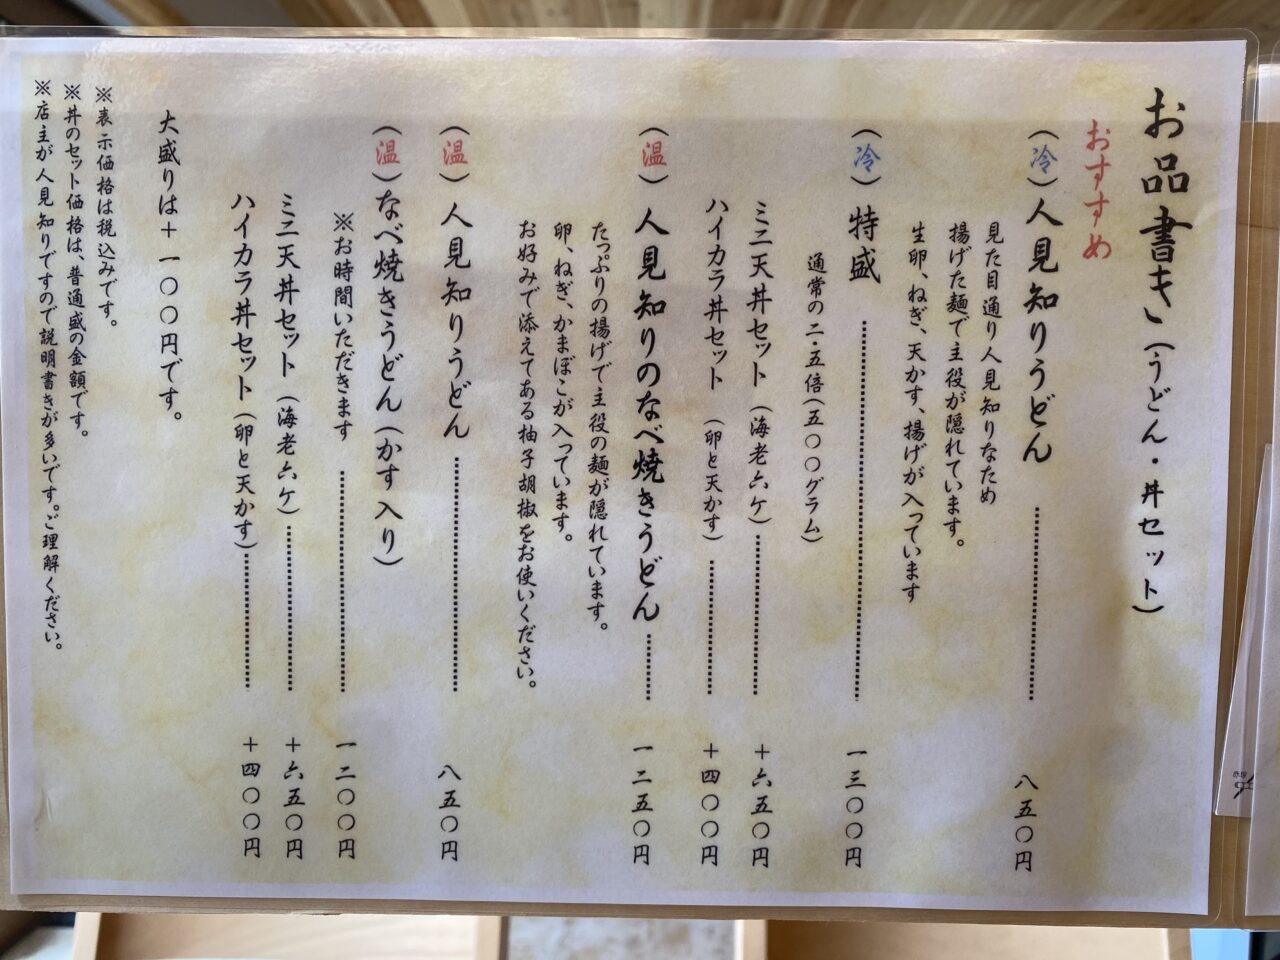 お品書き(うどん・丼セット)
おすすめ
(冷)人見知りうどん……………八五〇円
見た目通り人見知りなため
揚げた麺で主役が隠れています。
生卵、ねぎ、天かす、揚げが入っています
(冷)特盛……………一三〇〇円
通常の二・五倍(五〇〇グラム)
ミニ天丼セット(海老六ケ)……………+六五〇円
ハイカラ丼セット(卵と天かす)……………+四〇〇円
(温)人見知りのなべ焼きうどん……………一二五〇円
たっぷりの揚げで主役の麺が隠れています。
卵、ねぎ、かまぼこが入っています。
お好みで添えてある柚子胡椒をお使いください。
(温)人見知りうどん……………八五〇円
(温)なべ焼きうどん(かす入り)
※お時間いただきます……………一二〇〇円
ミニ天丼セット(海老六ケ)……………+六五〇円
ハイカラ丼セット(卵と天かす)……………+四〇〇円
大盛りは+一〇〇円です。
※表示価格は税込みです。
※丼のセット価格は、普通盛の金額です。
※店主が人見知りですので説明書きが多いです。ご理解ください。